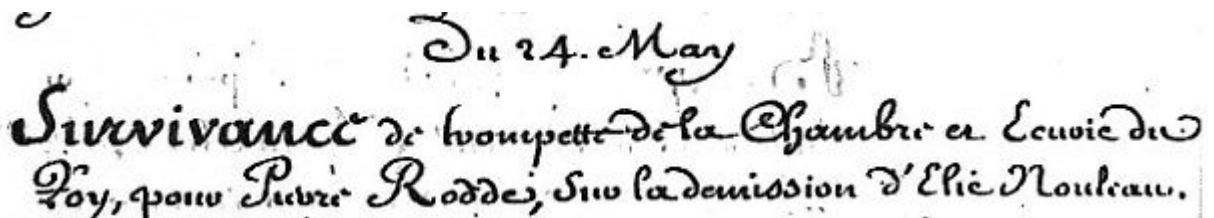 Du 24. May
Survivance de trompette de la Chambre et Ecurie du
Roy, pour Pierre Rodde, sur la demission d'Elie Nouleau.